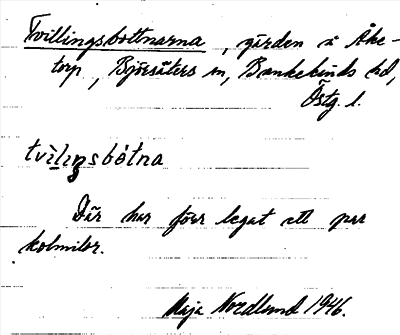 Tvillingsbottnarna, gärden å Åke-
torp, Björsäters sn, Bankekinds hd,
Östg. l.
tvìliŋsbòtna
Där har förr legat ett par
kolmilor.
Maja Nordlund 1946.